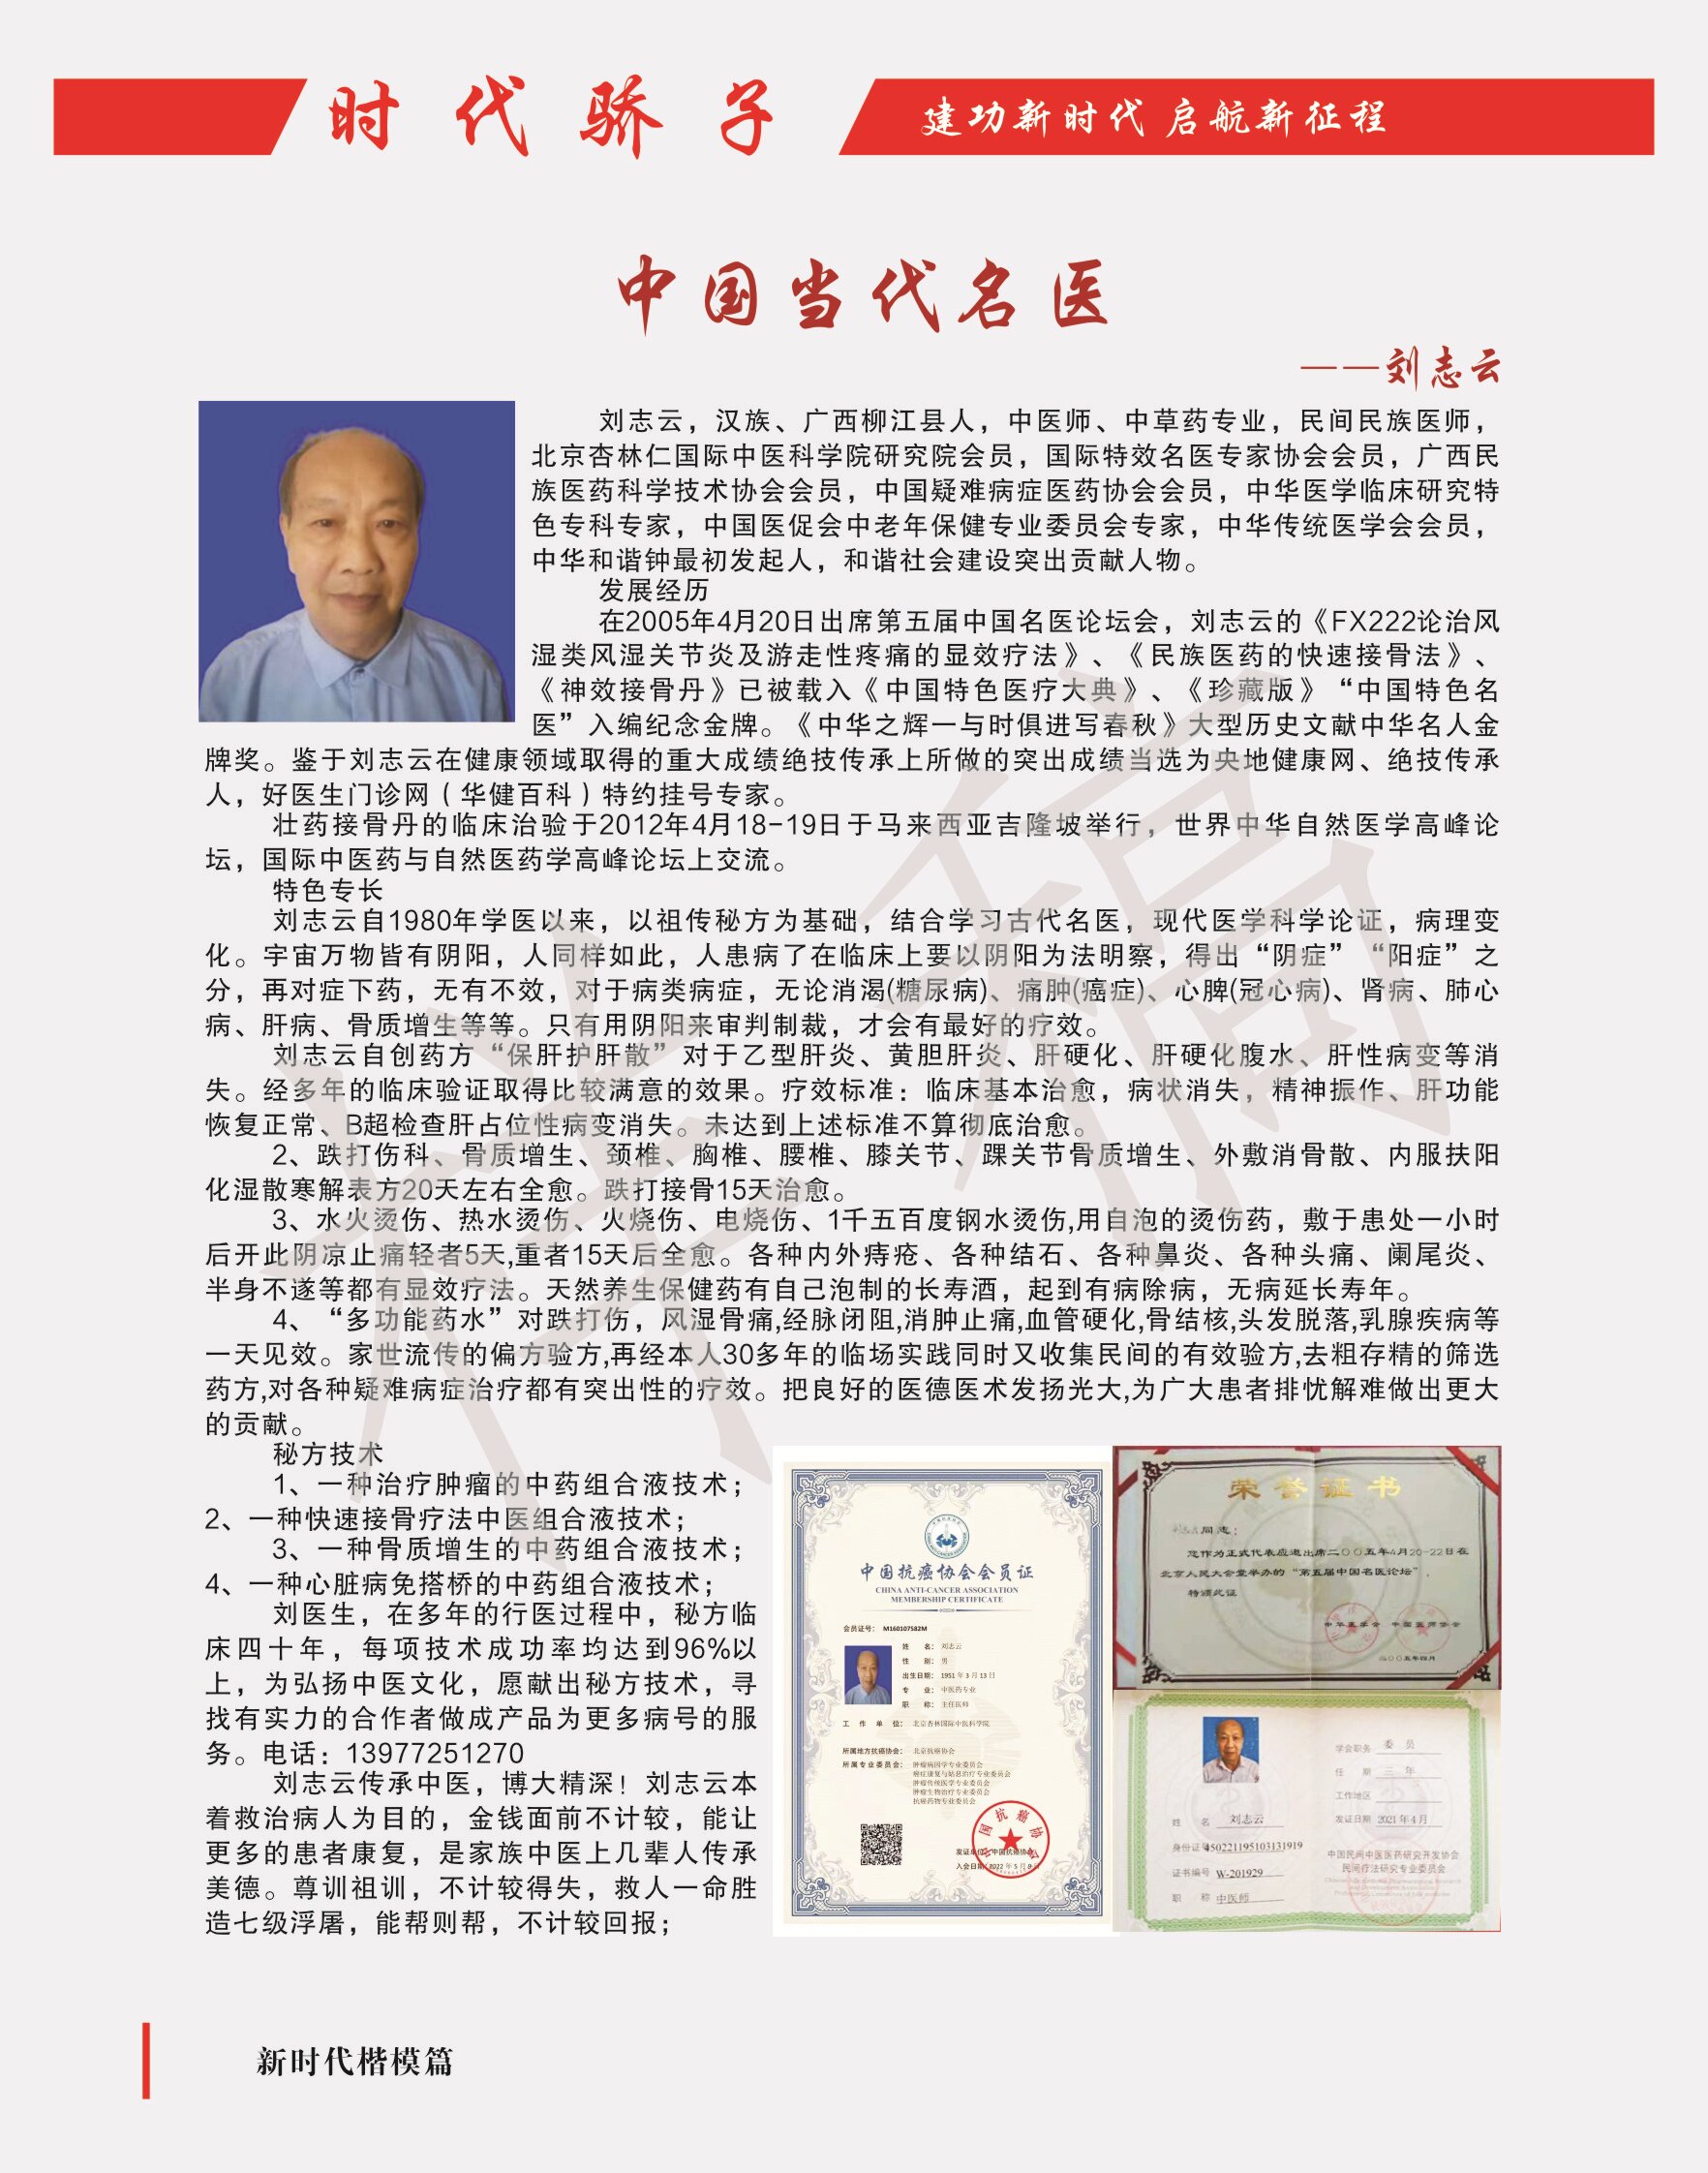 时代骄子
建功新时代 启航新征程
中国当代名医
——刘志云
刘志云，汉族、广西柳江县人，中医师、中草药专业，民间民族医师，
北京杏林仁国际中医科学院研究院会员，国际特效名医专家协会会员，广西民
族医药科学技术协会会员，中国疑难病症医药协会会员，中华医学临床研究特
色专科专家，中国医促会中老年保健专业委员会专家，中华传统医学会会员，
中华和谐钟最初发起人，和谐社会建设突出贡献人物。
发展经历
在2005年4月20日出席第五届中国名医论坛会，刘志云的《FX222论治风
湿类风湿关节炎及游走性疼痛的显效疗法》、《民族医药的快速接骨法》、
《神效接骨丹》已被载入《中国特色医疗大典》、《珍藏版》“中国特色名
医”入编纪念金牌。《中华之辉一与时俱进写春秋》大型历史文献中华名人金
牌奖。鉴于刘志云在健康领域取得的重大成绩绝技传承上所做的突出成绩当选为央地健康网、绝技传承
人，好医生门诊网（华健百科）特约挂号专家。
壮药接骨丹的临床治验于2012年4月18-19日于马来西亚吉隆坡举行，世界中华自然医学高峰论
坛，国际中医药与自然医药学高峰论坛上交流。
特色专长
刘志云自1980年学医以来，以祖传秘方为基础，结合学习古代名医，现代医学科学论证，病理变
化。宇宙万物皆有阴阳，人同样如此，人患病了在临床上要以阴阳为法明察，得出“阴症”“阳症”之
分，再对症下药，无有不效，对于病类病症，无论消渴(糖尿病)、痛肿(癌症)、心脾(冠心病)、肾病、肺心
病、肝病、骨质增生等等。只有用阴阳来审判制裁，才会有最好的疗效。
刘志云自创药方“保肝护肝散”对于乙型肝炎、黄胆肝炎、肝硬化、肝硬化腹水、肝性病变等消
失。经多年的临床验证取得比较满意的效果。疗效标准：临床基本治愈，病状消失，精神振作、肝功能
恢复正常、B超检查肝占位性病变消失。未达到上述标准不算彻底治愈。
2、跌打伤科、骨质增生、颈椎、胸椎、腰椎、膝关节、踝关节骨质增生、外敷消骨散、内服扶阳
化湿散寒解表方20天左右全愈。跌打接骨15天治愈。
3、水火烫伤、热水烫伤、火烧伤、电烧伤、1千五百度钢水烫伤,用自泡的烫伤药，敷于患处一小时
后开此阴凉止痛轻者5天,重者15天后全愈。各种内外痔疮、各种结石、各种鼻炎、各种头痛、阑尾炎、
半身不遂等都有显效疗法。天然养生保健药有自己泡制的长寿酒，起到有病除病，无病延长寿年。
4、“多功能药水”对跌打伤，风湿骨痛,经脉闭阻,消肿止痛,血管硬化,骨结核,头发脱落,乳腺疾病等
一天见效。家世流传的偏方验方,再经本人30多年的临场实践同时又收集民间的有效验方,去粗存精的筛选
药方,对各种疑难病症治疗都有突出性的疗效。把良好的医德医术发扬光大,为广大患者排忧解难做出更大
的贡献。
秘方技术
1、一种治疗肿瘤的中药组合液技术；
2、一种快速接骨疗法中医组合液技术；
3、一种骨质增生的中药组合液技术；
4、一种心脏病免搭桥的中药组合液技术；
刘医生，在多年的行医过程中，秘方临
床四十年，每项技术成功率均达到96%以
上，为弘扬中医文化，愿献出秘方技术，寻
找有实力的合作者做成产品为更多病号的服
务。电话：13977251270
刘志云传承中医，博大精深！刘志云本
着救治病人为目的，金钱面前不计较，能让
更多的患者康复，是家族中医上几辈人传承
美德。尊训祖训，不计较得失，救人一命胜
造七级浮屠，能帮则帮，不计较回报；
中国抗癌协会会员证
CHINA ANTI-CANCER ASSOCIATION
MEMBERSHIP CERTIFICATE
会员证号： M160107582M
姓 名： 刘志云
性 别： 男
出生日期： 1951 年 3 月 13 日
专 业： 中医药专业
职 称： 主任医师
工 作 单 位： 北京杏林国际中医科学院
所属地方抗癌协会： 北京抗癌协会
所属专业委员会： 肿瘤病因学专业委员会
癌症康复与姑息治疗专业委员会
肿瘤传统医学专业委员会
肿瘤生物治疗专业委员会
抗癌药物专业委员会
发证单位：中国抗癌协会
入会日期：2022 年 5 月 9 日
荣誉证书
同志：
您作为正式代表应邀出席二〇〇五年4月20-22日在
北京人民大会堂举办的“第五届中国名医论坛”，
特颁此证
中华医学会 中国医师协会
二〇〇五年四月
姓 名 刘志云
身份证号 450221195103131919
证书编号 W-201929
职 称 中医师
学会职务 委 员
任 期 三 年
工作地区
发证日期 2021 年 4 月
中国民间中医医药研究开发协会
民间疗法研究专业委员会
样稿
新时代楷模篇